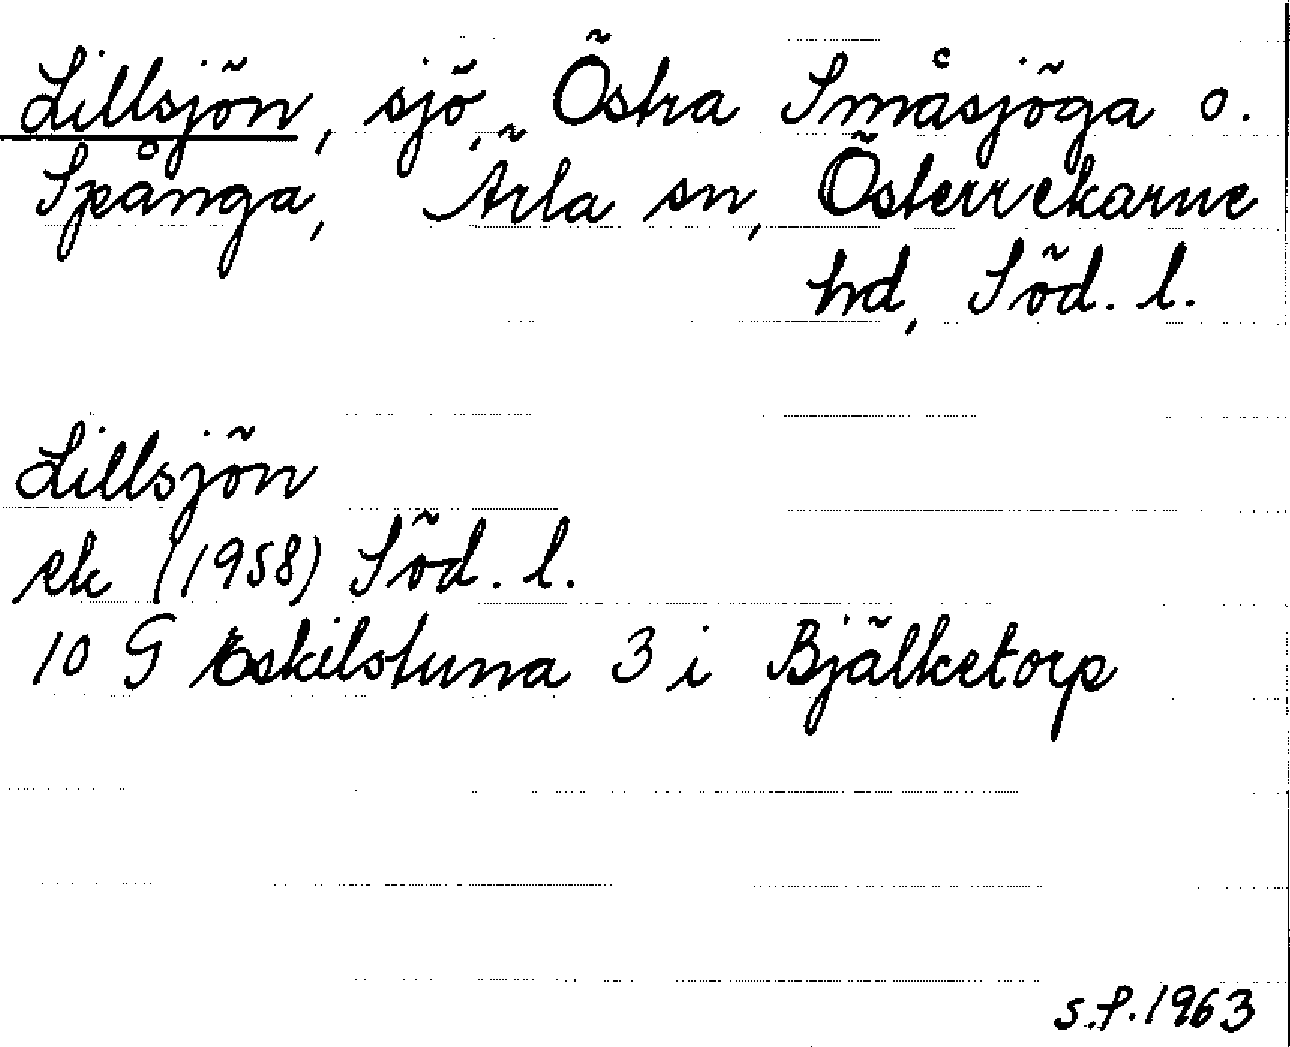 Lillsjön, sjö, Östra Småsjöga o.
Spånga, Ärla sn, Österrekarne
hd, Söd. l.
Lillsjön
ek (1958) Söd. l.
10 G Eskilstuna 3 i Bjälketorp
S.P. 1963